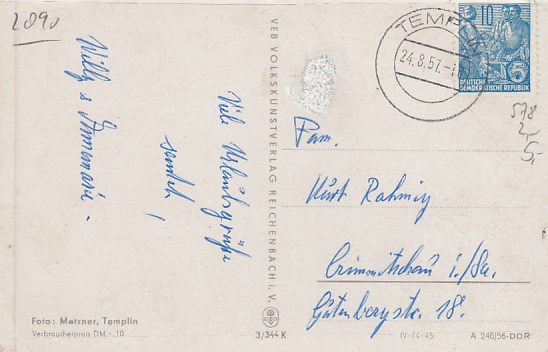 2090
Viele Urlaubsgrüße
sendet!
Willy u Annemarie.
VEB VOLKSKUNSTVERLAG REICHENBACH I. V.
24.8.57.
10
5
DEUTSCHE
DEMOKRATISCHE REPUBLIK
578
2,-
5,-
Fam.
Kurt Rahmig
Crimmitschau i./Sa.
Gutenbergstr. 18.
Foto: Metzner, Templin
Verbraucherpreis DM -.10
3/344 K
IV-14-45
A 246/56-DDR